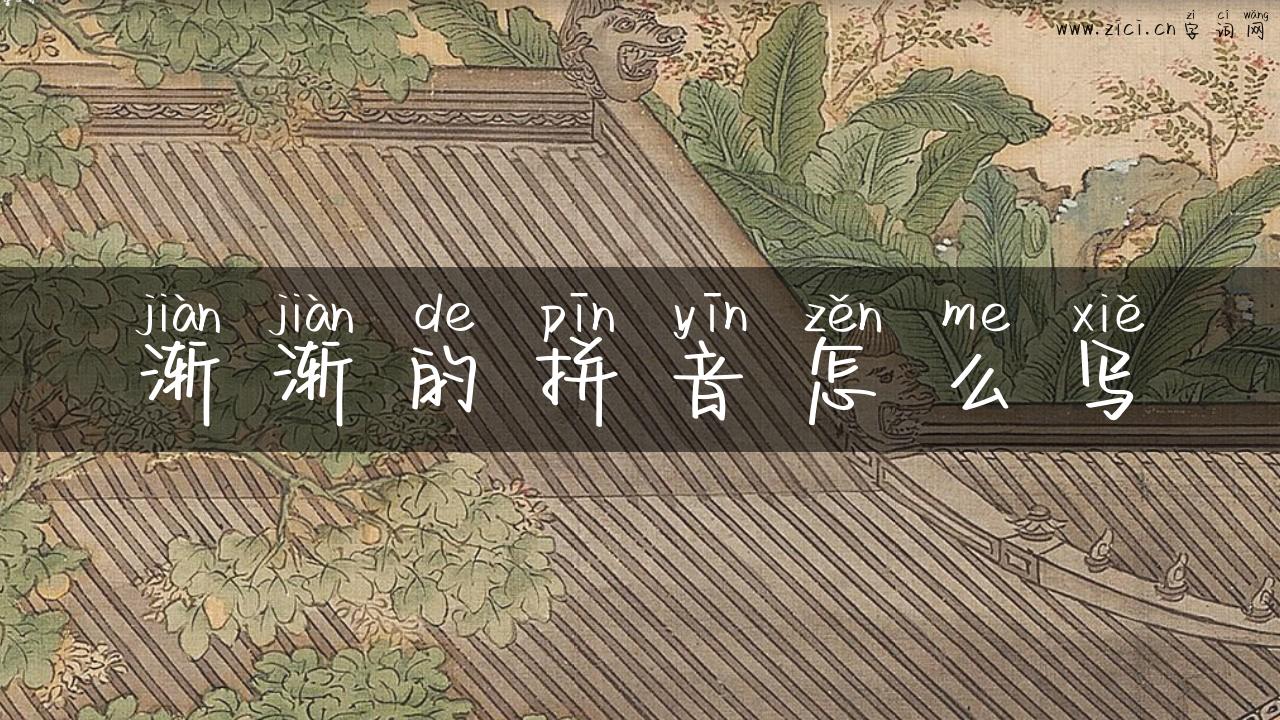 zì cí wǎng
www.zici.cn 字词网
jiàn jiàn de pīn yīn zěn me xiě
渐渐的拼音怎么写